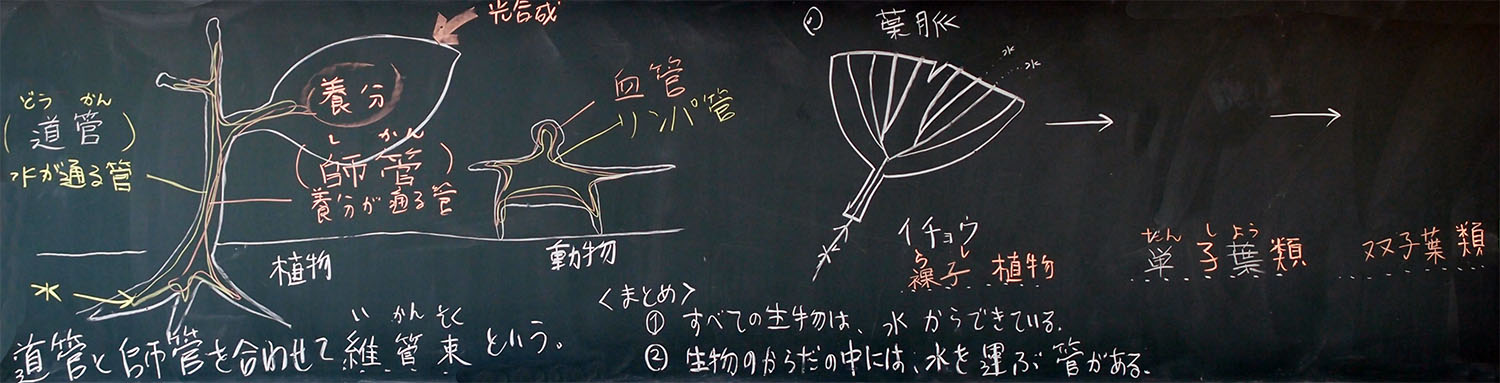 光合成
養分
どう かん
(道管)
水が通る管
し かん
(師管)
養分が通る管
水
植物
血管
リンパ管
動物
い かん そく
道管と師管を合わせて維管束という。
葉脈
水
水
イチョウ
ら し
裸子植物
→
→
たん し よう
単子葉類
双子葉類
<まとめ>
① すべての生物は、水からできている.
② 生物のからだの中には、水を運ぶ管がある.